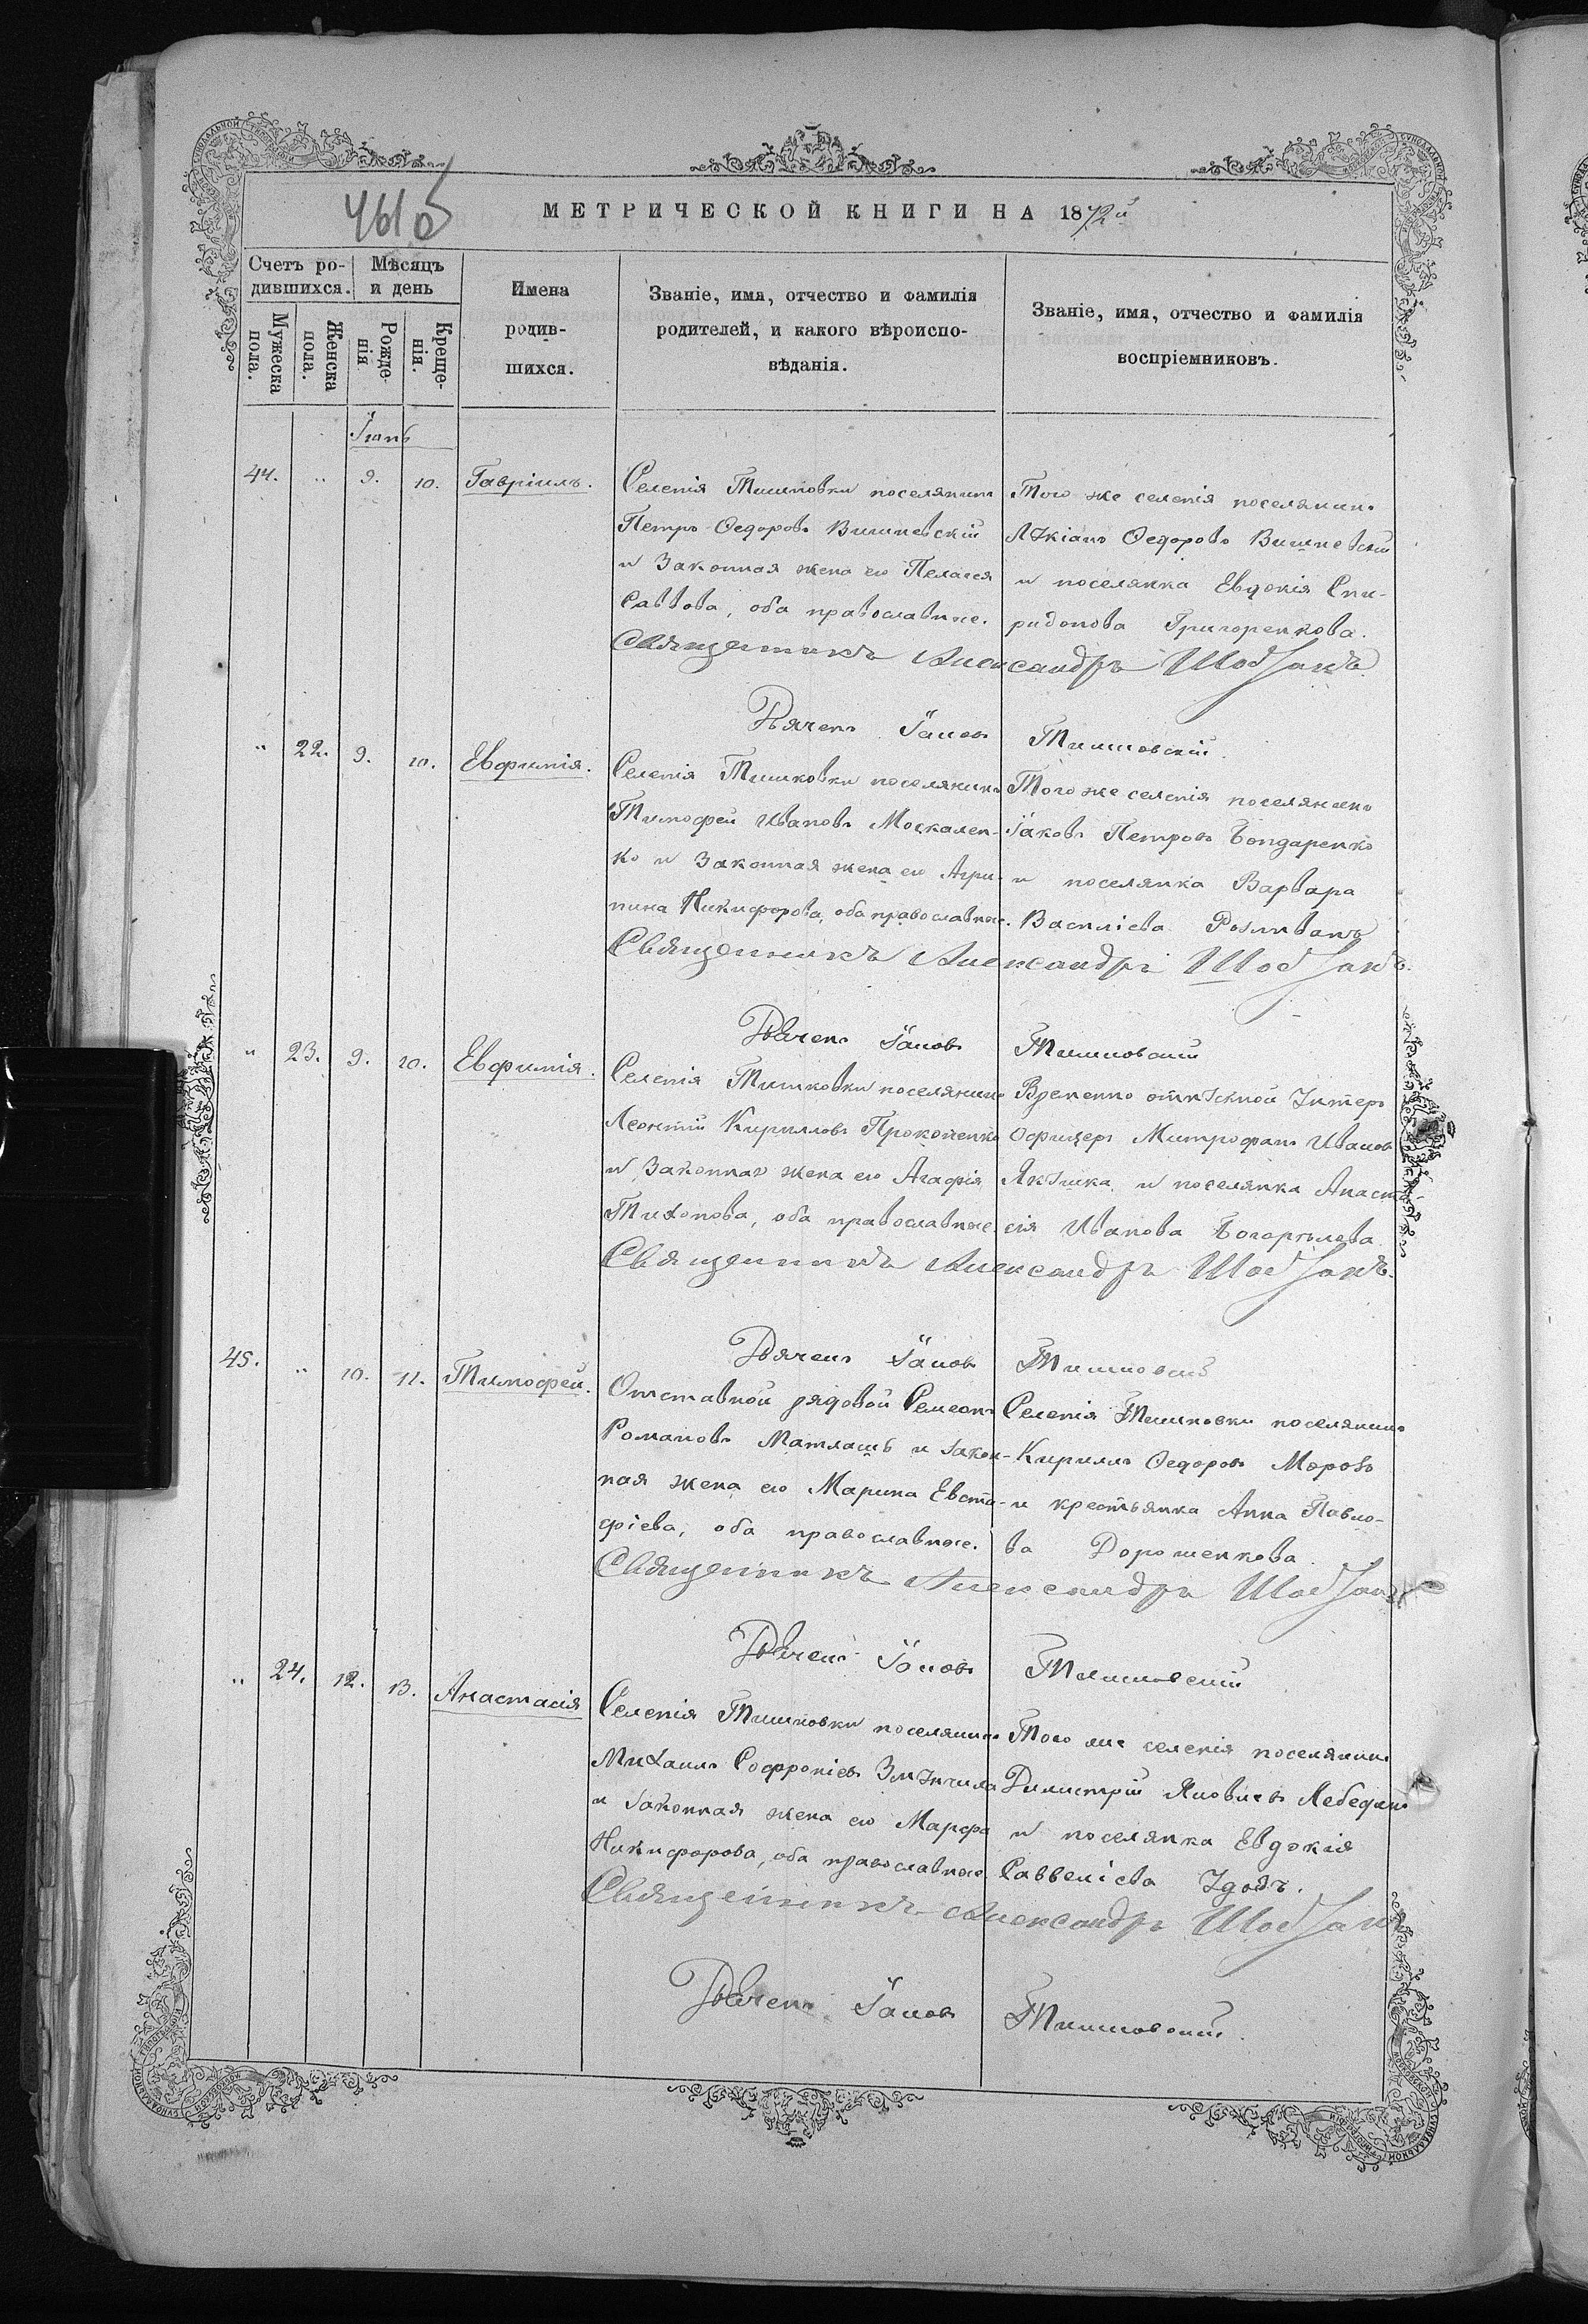 461об
МЕТРИЧЕСКОЙ КНИГИ НА 1872й
Счетъ ро-
дившихся.
Мѣсяцъ
и день
Мужеска
пола.
Женска
пола.
Рожде-
нія
Креще-
нія.
Имена
родив-
шихся.
Званіе, имя, отчество и фамилія
родителей, и какого вѣроиспо-
вѣданія.
Званіе, имя, отчество и фамилія
воспріемниковъ.
Іюнь
44. " 9. 10. Гавріилъ.
Селенія Тишковки поселянинъ
Петръ Ѳедоровъ Вишневскій
и Законная жена его Пелагея
Саввова, оба православные.
Того же селенія поселянинъ
Лукіанъ Ѳедоровъ Вишневскій
и поселянка Евдокія Спи-
ридонова Григоренкова.
Священникъ Александръ
Дячекъ Іаковъ Тишковскій
" 22. 9. 10. Евфимія.
Селенія Тишковки поселянинъ
Тимофей Ивановъ Москален-
ко и Законная жена его Агри-
пина Никифорова, оба православные.
Того же селенія поселянинъ
Іаковъ Петровъ Бондаренко
и поселянка Варвара
Василіева
Священникъ Александръ
Дячекъ Іаковъ Тишковскій
" 23. 9. 10. Евфимія.
Селенія Тишковки поселянинъ
Леонтій Кирилловъ Прокопенко
и Законная жена его Агафія
Тихонова, оба православные.
Временно отпускной Унтеръ
Офицеръ Митрофанъ Ивановъ
Якушка и поселянка Анаста-
сія Иванова
Священникъ Александръ
Дячекъ Іаковъ Тишковскій
45. " 10. 11. Тимофей.
Отставной рядовой Семеонъ
Романовъ Матлашъ и закон-
ная жена его Марина Евста-
фіева, оба православные.
Селенія Тишковки поселянинъ
Кириллъ Ѳедоровъ Морозъ
и крестьянка Анна Павло-
ва Дорошенкова.
Священникъ Александръ
Дячекъ Іаковъ Тишковскій
" 24. 12. 13. Анастасія
Селенія Тишковки поселянинъ
Михаилъ Софроніевъ
и законная жена его Марфа
Никифорова, оба православные.
Того же селенія поселянинъ
Димитрій Яковлевъ Лебединъ
и поселянка Евдокія
Савеліева
Священникъ Александръ
Дячекъ Іаковъ Тишковскій.